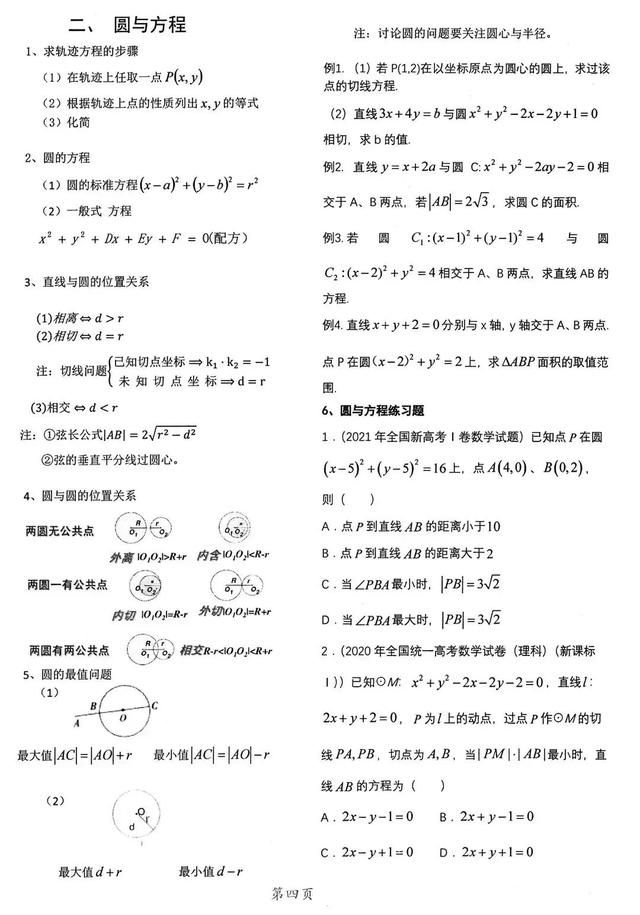 二、 圆与方程
1、求轨迹方程的步骤
（1）在轨迹上任取一点 P(x, y)
（2）根据轨迹上点的性质列出 x, y 的等式
（3）化简
2、圆的方程
（1）圆的标准方程 (x − a)² + (y − b)² = r²
（2）一般式 方程
x² + y² + Dx + Ey + F = 0(配方)
3、直线与圆的位置关系
(1)相离 ⇔ d > r
(2)相切 ⇔ d = r
注：切线问题{已知切点坐标 ⟹ k₁ · k₂ = −1
未 知 切 点 坐 标 ⟹ d = r
(3)相交 ⇔ d < r
注：①弦长公式|AB| = 2√(r² − d²)
②弦的垂直平分线过圆心。
4、圆与圆的位置关系
两圆无公共点
R r O₁ O₂
外离 |O₁O₂|>R+r 内含 |O₁O₂|<R-r
两圆一有公共点
内切 |O₁O₂|=R-r 外切|O₁O₂|=R+r
两圆有两公共点 R r O₁ O₂ 相交R-r<|O₁O₂|<R+r
5、圆的最值问题
（1）
A B O C
最大值|AC| = |AO| + r 最小值|AC| = |AO| − r
（2）
O r d
最大值 d + r 最小值 d − r
注：讨论圆的问题要关注圆心与半径。
例1.（1）若 P(1,2)在以坐标原点为圆心的圆上，求过该
点的切线方程.
（2）直线 3x + 4y = b 与圆 x² + y² − 2x − 2y + 1 = 0
相切，求 b 的值.
例2. 直线 y = x + 2a 与圆 C: x² + y² − 2ay − 2 = 0 相
交于 A、B 两点，若|AB| = 2√3，求圆 C 的面积.
例3. 若 圆 C₁ : (x − 1)² + (y − 1)² = 4 与 圆
C₂ : (x − 2)² + y² = 4 相交于 A、B 两点，求直线 AB 的
方程.
例4. 直线 x + y + 2 = 0 分别与 x 轴, y 轴交于 A、B 两点.
点 P 在圆(x − 2)² + y² = 2 上，求 ΔABP 面积的取值范
围.
6、圆与方程练习题
1．（2021 年全国新高考Ⅰ卷数学试题）已知点 P 在圆
(x − 5)² + (y − 5)² = 16 上，点 A(4,0)、B(0,2)，
则（ ）
A．点 P 到直线 AB 的距离小于10
B．点 P 到直线 AB 的距离大于 2
C．当 ∠PBA 最小时，|PB| = 3√2
D．当 ∠PBA 最大时，|PB| = 3√2
2．（2020 年全国统一高考数学试卷（理科）（新课标
Ⅰ））已知⊙M: x² + y² − 2x − 2y − 2 = 0，直线 l：
2x + y + 2 = 0，P 为 l 上的动点，过点 P 作⊙M 的切
线 PA, PB，切点为 A, B，当| PM | · | AB |最小时，直
线 AB 的方程为（ ）
A．2x − y − 1 = 0 B．2x + y − 1 = 0
C．2x − y + 1 = 0 D．2x + y + 1 = 0
第四页